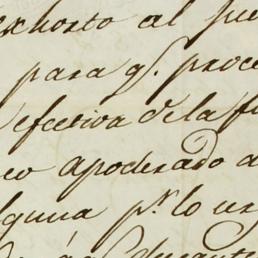 exhorto al jue
para q.e proce
efectiva de la f
co apoderado a
lguna p.r lo ur